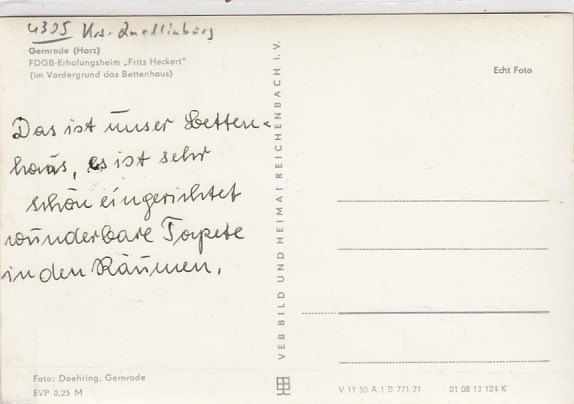 4305 Krs. Quedlinburg
Gernrode (Harz)
FDGB-Erholungsheim „Fritz Heckert"
(im Vordergrund das Bettenhaus)
Echt Foto
Das ist unser Betten-
haus, es ist sehr
schön eingerichtet
wunderbare Tapete
in den Räumen.
VEB BILD UND HEIMAT REICHENBACH I. V.
Foto: Doehring, Gernrode
EVP 0,25 M
V 11 50 A 1 B 771 71 01 08 13 124 K